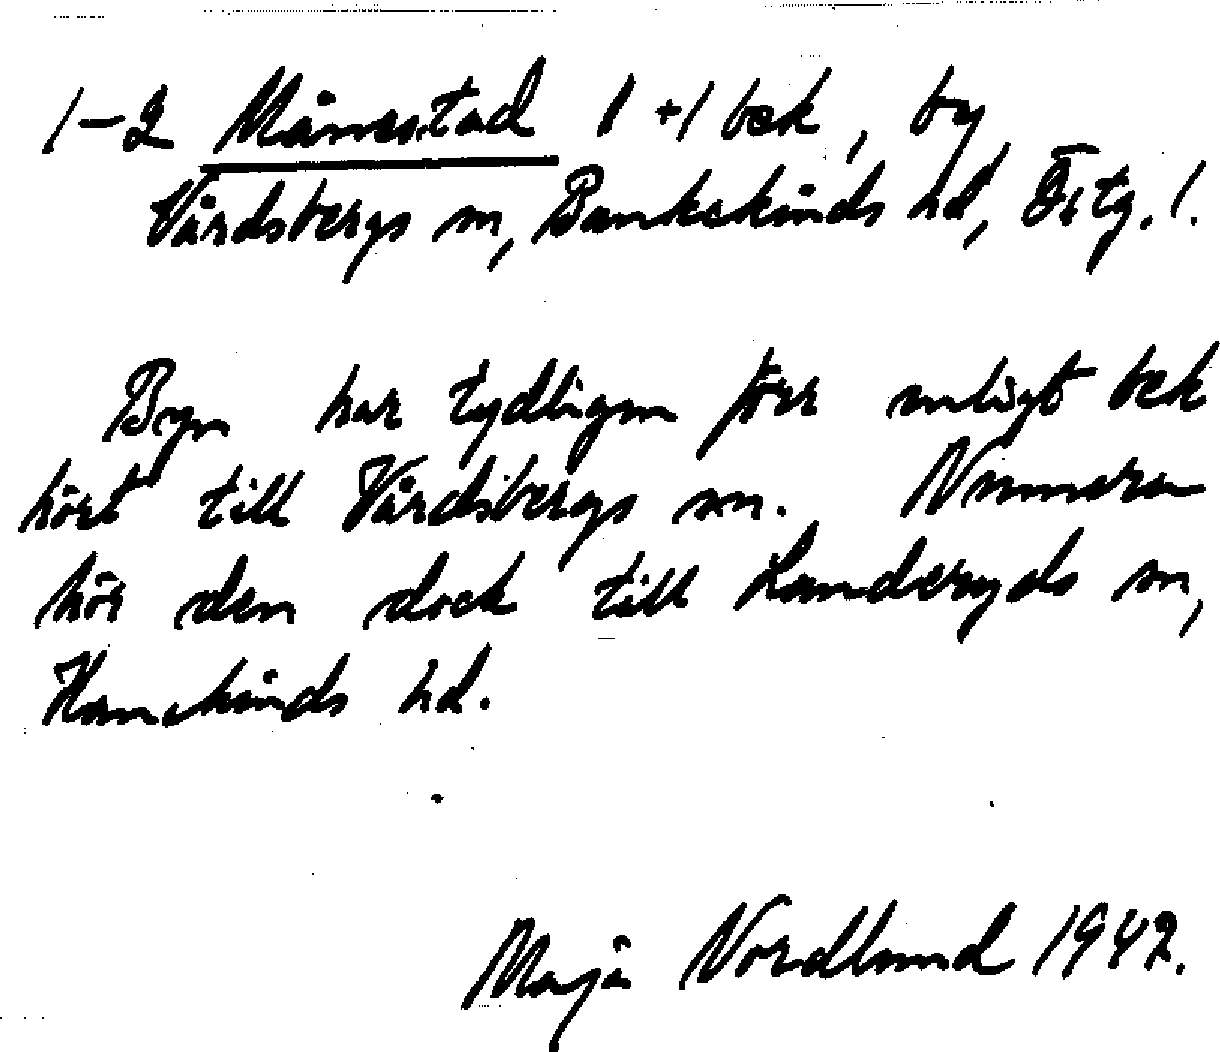 1-2 Månestad 1 + 1 bek, by
Vårdsbergs sn, Bankekinds hd, Östg. l.
Byn har tydligen förr enligt bek
hört till Vårdsbergs sn. Numera
hör den dock till Landeryds sn,
Hanekinds hd.
Maja Nordlund 1942.